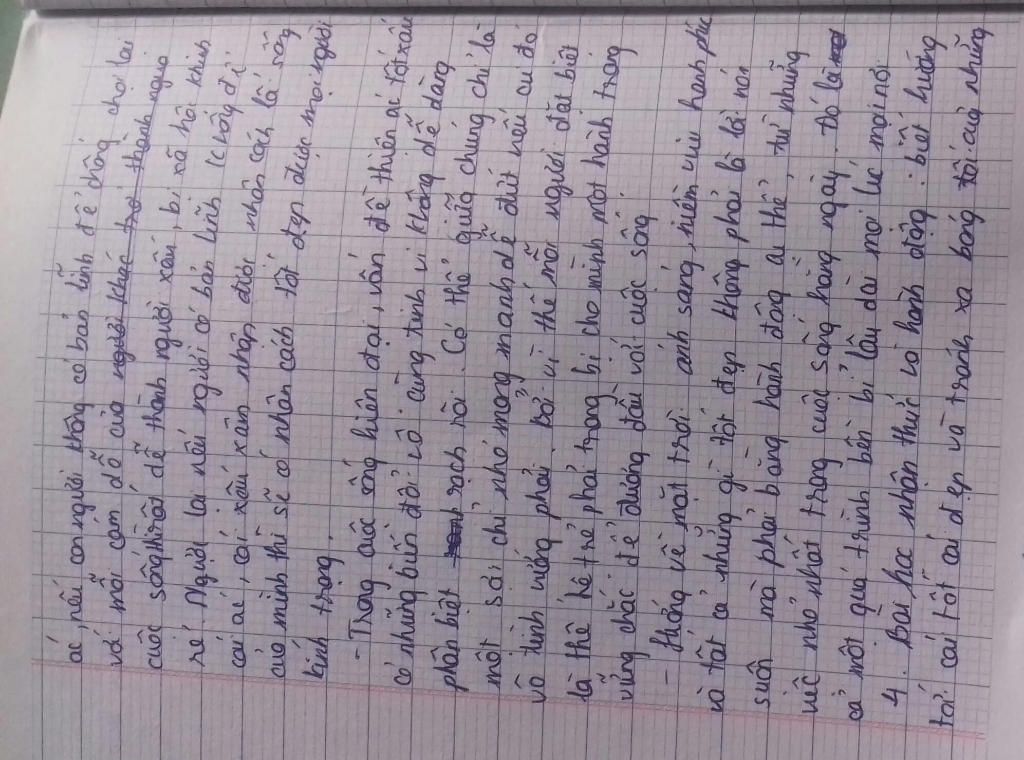 ác, nếu con người không có bản lĩnh để chống chọi lại
với mỗi cám dỗ của người khác trở thành ngưa
cuộc sống thì rất dễ thành người xấu, bị xã hội khinh
rẻ. Ngược lại nếu người có bản lĩnh chống đi
cái ác, cái xấu xâm nhập được nhân cách lẽ sống
của mình thì sẽ có nhân cách tốt đẹp được mọi người
kính trọng.
- Trong cuộc sống hiện đại, vấn đề thiện ác tốt xấu
có những biến đổi vô cùng tinh vi không dễ dàng
phân biệt rạch ròi. Có thể giữa chúng chỉ là
một sợi chỉ nhỏ mong manh dễ đứt nếu ai đó
vô tình vướng phải. bởi vì thế mỗi người đặt biệt
là thế hệ trẻ phải trang bị cho mình một hành trang
vững chắc để đương đầu với cuộc sống.
- Hướng về mặt trời: ánh sáng, niềm vui hạnh phúc
và tất cả những gì tốt đẹp không phải là lời nói
suôn mà phải bằng hành động cụ thể, từ những
việc nhỏ nhất trong cuộc sống hằng ngày. Đó là
cả một quá trình bền bỉ lâu dài mọi lúc mọi nơi
4. Bài học nhận thức và hành động: biết hướng
tới cái tốt cái đẹp và tránh xa bóng tối của những